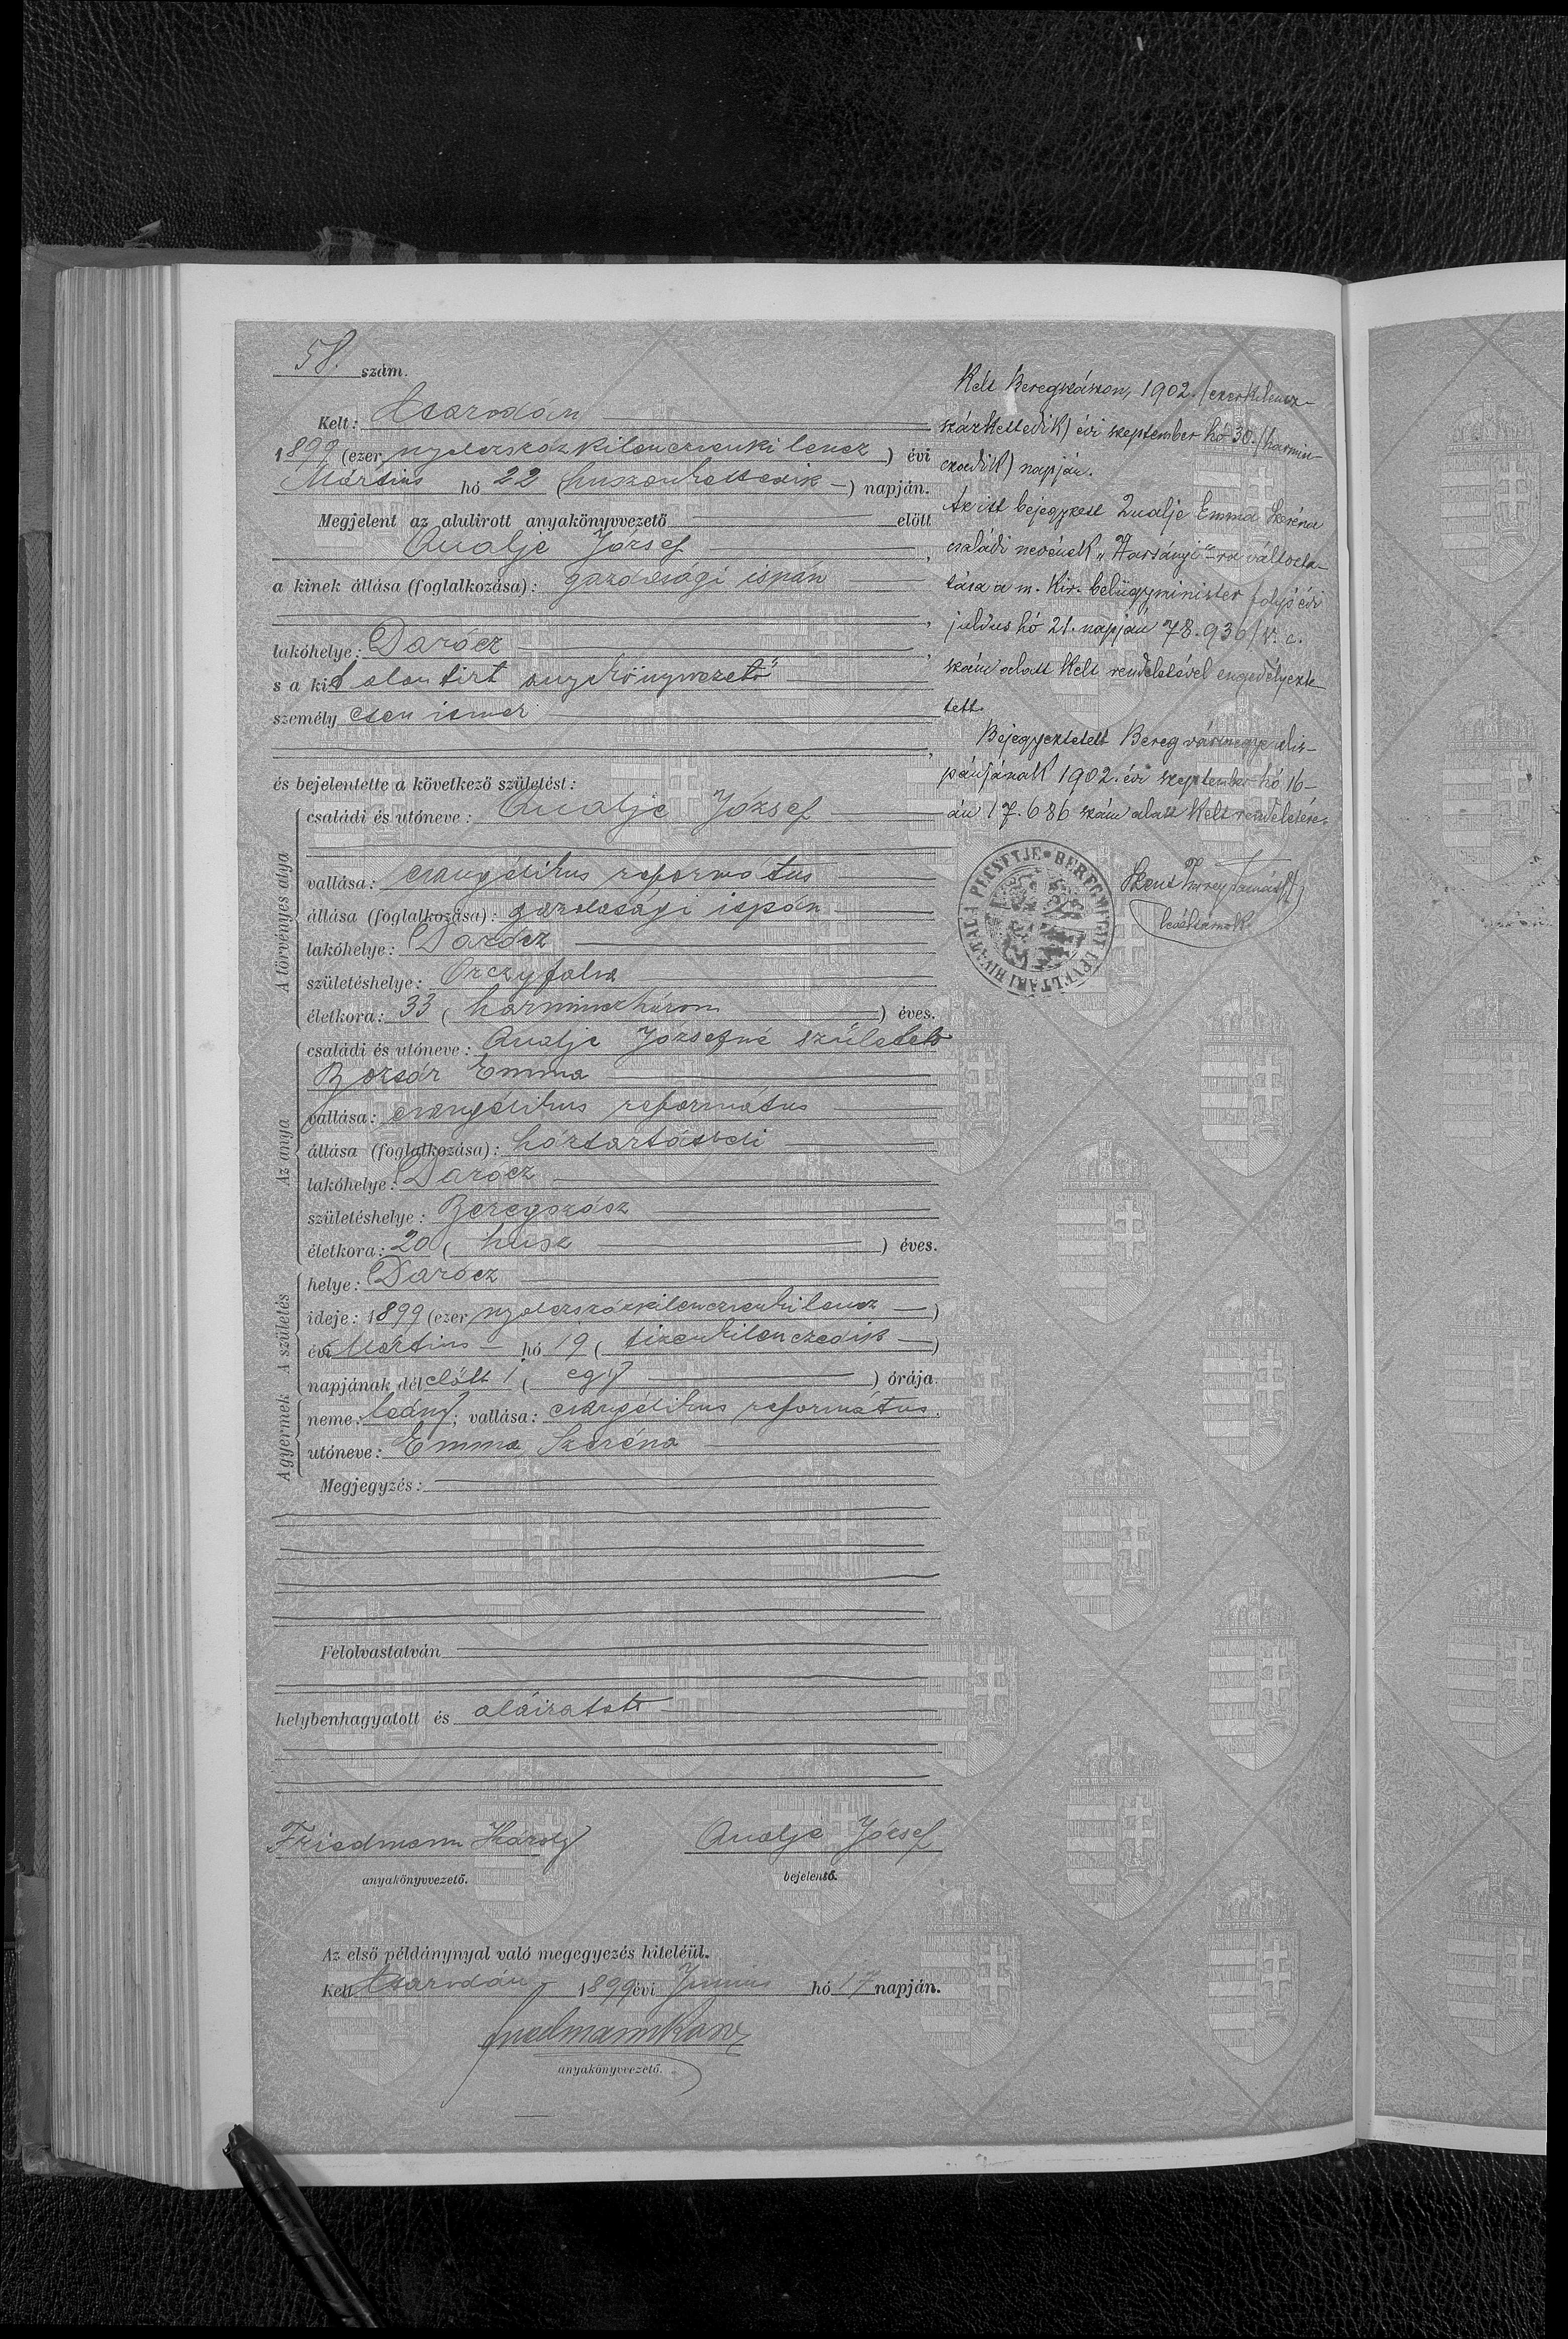 58. szám.
Kelt: Csarodán
1899 (ezer nyolczszázkilenczvenkilencz) évi
Mártius hó 22 (huszonkettedik) napján.
Megjelent az alulirott anyakönyvvezető előtt
Qualje József,
a kinek állása (foglalkozása): gazdasági ispán
,
lakóhelye: Darócz,
s a kit alantirt anyakönyvvezető
személyesen ismer
,
és bejelentette a következő születést:
A törvényes atya
családi és utóneve: Qualje József
vallása: evangélikus református
állása (foglalkozása): gazdasági ispán
lakóhelye: Darócz
születéshelye: Orczyfalva
életkora: 33 (harminczhárom) éves.
Az anya
családi és utóneve: Qualje Józsefné született
Bozsár Emma
vallása: evangélikus református
állása (foglalkozása): háztartásbeli
lakóhelye: Darócz
születéshelye: Beregszász
életkora: 20 (husz) éves.
A születés
helye: Darócz
ideje: 1899 (ezer nyolczszázkilenczvenkilencz)
évi Mártius hó 19 (tizenkilenczedik)
napjának délelőtt 1 (egy) órája.
A gyermek
neme: leány; vallása: evangélikus református.
utóneve: Emma Szeréna
Megjegyzés:
Felolvastatván
helybenhagyatott és aláiratott
Friedmann Károly
anyakönyvvezető.
Qualje József
bejelentő.
Az első példánynyal való megegyezés hiteléül.
Kelt Csarodán, 1899 évi Junius hó 17 napján.
Friedmann Károly
anyakönyvvezető.
Kelt Beregszászon, 1902. (ezerkilencz-
százkettedik) évi szeptember hó 30. (harmin-
czadik) napján.
Az itt bejegyzett Qualje Emma Szeréna
családi nevének "Harsányi"-ra változta-
tása a m. kir. belügyminister folyó évi
julius hó 21. napján 78.936/V. c.
szám alatt kelt rendeletével engedélyezte-
tett.
Bejegyeztetett Bereg vármegye alis-
pánjának 1902. évi szeptember hó 16-
án 17.686 szám alatt kelt rendeletére.
BEREGMEGYE LEVÉLTÁRI HIVATALA PECSÉTJE
levéltárnok